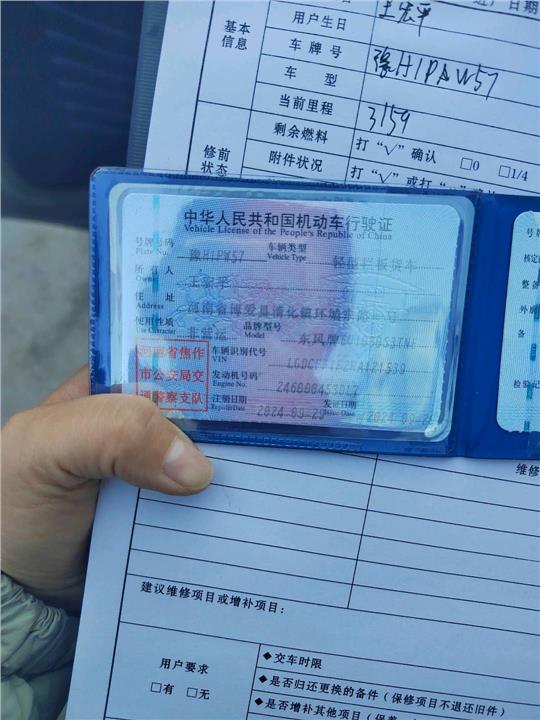 基本
信息
用户生日
王宏平
车牌号
豫H1PW57
车 型
当前里程
3159
修前
状态
剩余燃料
打“√”确认 □0 □1/4
附件状况
中华人民共和国机动车行驶证
Vehicle License of the People's Republic of China
号牌号码
Plate No.
豫H1PW57
车辆类型
Vehicle Type
轻型栏板货车
所有人
Owner
王宏平
住 址
Address
河南省博爱县清化镇环城
使用性质
Use Character
非营运
品牌型号
Model
东风牌
河南省焦作
市公安局交
通警察支队
车辆识别代号
VIN
发动机号码
Engine No.
注册日期
Register Date
2024-09-25
发证日期
Issue Date
号
核定
整备
外廓
备
检验记
维修
建议维修项目或增补项目:
用户要求
□有 □无
◆交车时限
◆是否归还更换的备件(保修项目不退还旧件)
◆是否增补其他项目(保养